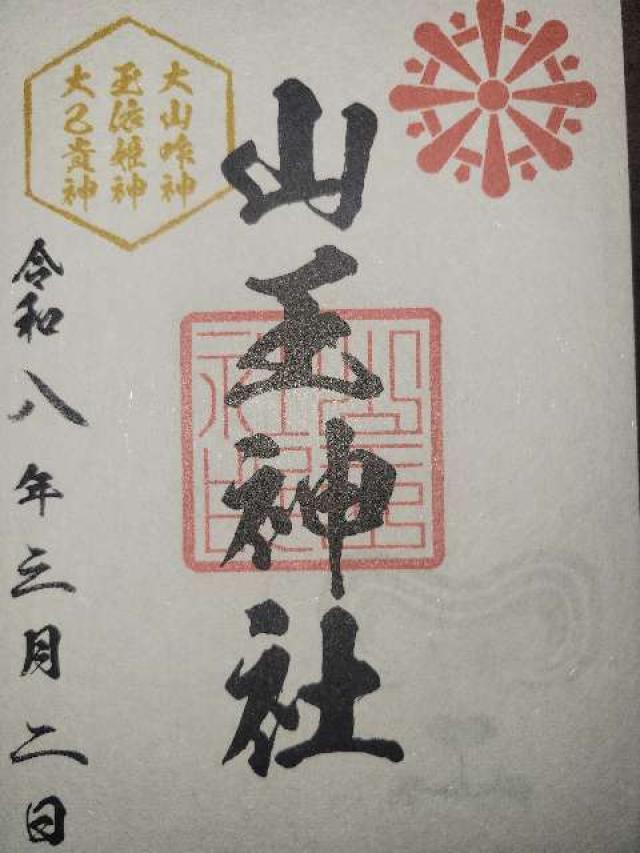 大山咋神
玉依姫神
大己貴神
山王神社
令和八年三月二日